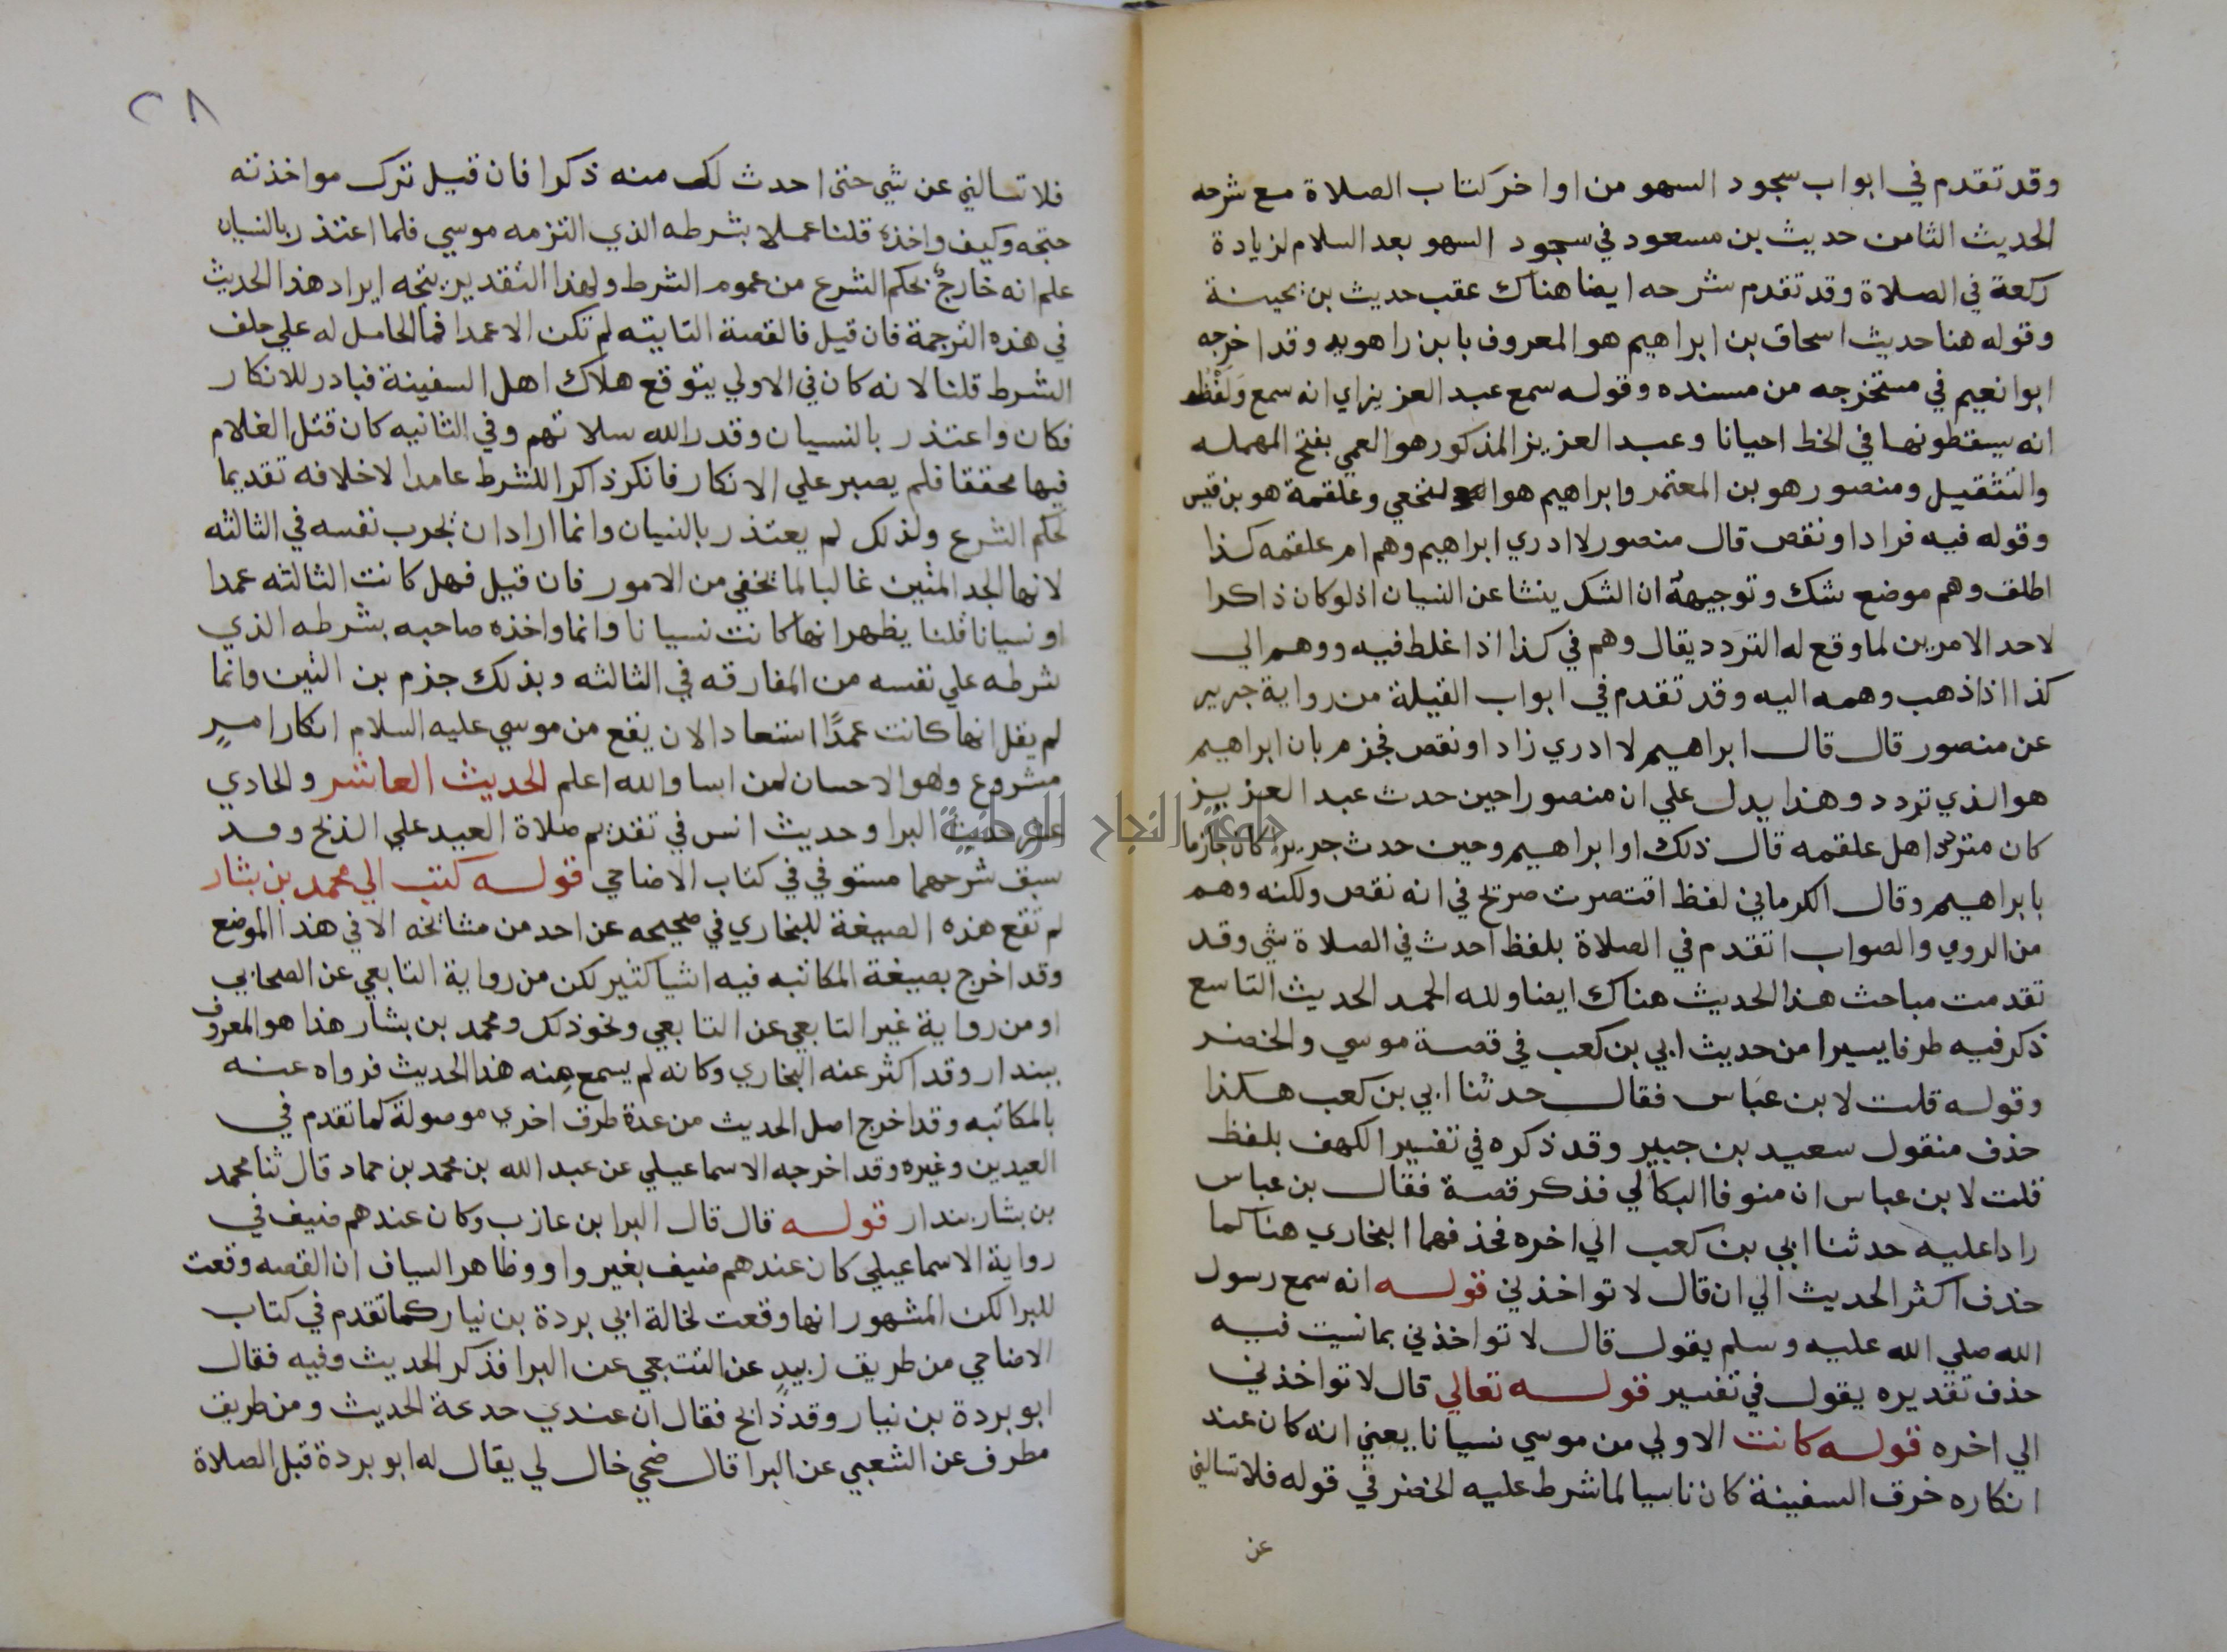 وقد تقدم في ابواب سجود السهو من اواخر كتاب الصلاة مع شرحه
الحديث الثامن حديث بن مسعود في سجود السهو بعد السلام لزيادة
ركعة في الصلاة وقد تقدم شرحه ايضا هناك عقب حديث بن بحينة
وقوله هنا حديث اسحاق بن ابراهيم هو المعروف بابن راهويه وقد اخرجه
ابوا نعيم في مستخرجه من مسنده وقوله سمع عبد العزيز اي انه سمع ولفظه
انه يسقطونها في الخط احيانا وعبد العزيز المذكور هو العمي بفتح المهمله
والتثقيل ومنصور هو بن المعتمر وابراهيم هو النخعي وعلقمة هو بن قيس
وقوله فيه فزاد او نقص قال منصور لا ادري ابراهيم وهم ام علقمه كذا
اطلق وهم موضع شك وتوجيهه ان الشك ينشا عن النسيان اذ لو كان ذاكرا
لاحد الامرين لما وقع له التردد يقال وهم في كذا اذا غلط فيه ووهم الي
كذا اذا ذهب وهمه اليه وقد تقدم في ابواب القبلة من رواية جرير
عن منصور قال قال ابراهيم لا ادري زاد او نقص فجزم بان ابراهيم
هو الذي تردد وهذا يدل علي ان منصورا حين حدث عبد العزيز
كان مترددا هل علقمه قال ذلك او ابراهيم وحين حدث جرير كان جازما
بابراهيم وقال الكرماني لفظ اقتصرت صريح في انه نقص ولكنه وهم
من الروي والصواب ا تقدم في الصلاة بلفظ احدث في الصلاة شي وقد
تقدمت مباحث هذا الحديث هناك ايضا ولله الحمد الحديث التاسع
ذكر فيه طرفا يسيرا من حديث ابي بن كعب في قصة موسي والخضر
وقوله قلت لابن عباس فقال حدثنا ابي بن كعب هكذا
حذف منقول سعيد بن جبير وقد ذكره في تفسير الكهف بلفظ
قلت لابن عباس ان منوفا البكالي فذكر قصة فقال بن عباس
رادا عليه حدثنا ابي بن كعب الي اخره فحذفهما البخاري هنا كما
حذف اكثر الحديث الي ان قال لا تواخذني قوله انه سمع رسول
الله صلي الله عليه وسلم يقول قال لا تواخذني بما نسيت فيه
حذف تقديره يقول في تفسير قوله تعالي قال لا تواخذني
الي اخره قوله كانت الاولي من موسي نسيانا يعني انه كان عند
انكاره خرق السفينة كان ناسيا لما شرط عليه الخضر في قوله فلا تسالني
عن
٢٨
فلا تسالني عن شي حتى احدث لك منه ذكرا فان قيل ترك مواخذته
متجه وكيف واخذه قلنا عملا بشرطه الذي التزمه موسي فلما اعتذر بالنسيان
علم انه خارج بحكم الشرع من عموم الشرط ولهذا التقدير يتجه ايراد هذا الحديث
في هذه الترجمة فان قيل فالقصة الثانيه لم تكن الا عمدا فما الحامل له علي خلف
الشرط قلنا لانه كان في الاولي يتوقع هلاك اهل السفينة فبادر للانكار
فكان واعتذر بالنسيان وقدر الله سلامتهم وفي الثانيه كان قتل الغلام
فيها محققا فلم يصبر علي الانكار فانكر ذاكرا للشرط عامدا لاخلافه تقديما
لحكم الشرع ولذلك لم يعتذر بالنسيان وانما اراد ان يجرب نفسه في الثالثه
لانها الحد المبين غالبا لما يخفي من الامور فان قيل فهل كانت الثالثه عمدا
او نسيانا قلنا يظهر انها كانت نسيانا وانما واخذه صاحبه بشرطه الذي
شرطه علي نفسه من المفارقه في الثالثه وبذلك جزم بن التين وانما
لم يقل انها كانت عمدًا استبعادا لان يقع من موسي عليه السلام انكار امرٍ
مشروع وهو الاحسان لمن اسا والله اعلم الحديث العاشر والحادي
عشر حديث البرا وحديث انس في تقديم صلاة العيد علي الذبح وقد
سبق شرحهما مستوفي في كتاب الاضاحي قوله كتب الي محمد بن بشار
لم تقع هذه الصيغة للبخاري في صحيحه عن احد من مشايخه الا في هذا الموضع
وقد اخرج بصيغة المكاتبه فيه اشيا كثير لكن من رواية التابعي عن الصحابي
او من رواية غير التابعي عن التابعي ونحو ذلك ومحمد بن بشار هذا هو المعروف
ببندار وقد اكثر عنه البخاري وكانه لم يسمع منه هذا الحديث فرواه عنه
بالمكاتبه وقد اخرج اصل الحديث من عدة طرق اخري موصولة كما تقدم في
العيدين وغيره وقد اخرجه الاسماعيلي عن عبد الله بن محمد بن حماد قال ثنا محمد
بن بشار بندار قوله قال قال البرا ابن عازب وكان عندهم ضيف في
رواية الاسماعيلي كان عندهم ضيف بغير واو وظاهر السياق ان القصه وقعت
للبرا لكن المشهور انها وقعت لخالة ابي بردة بن نيار كما تقدم في كتاب
الاضاحي من طريق زبيد عن الشعبي عن البرا فذكر الحديث وفيه فقال
ابو بردة بن نيار وقد ذبح فقال ان عندي جدعة الحديث ومن طريق
مطرف عن الشعبي عن البرا قال ضحي خال لي يقال له ابو بردة قبل الصلاة
جامعة النجاح الوطنية